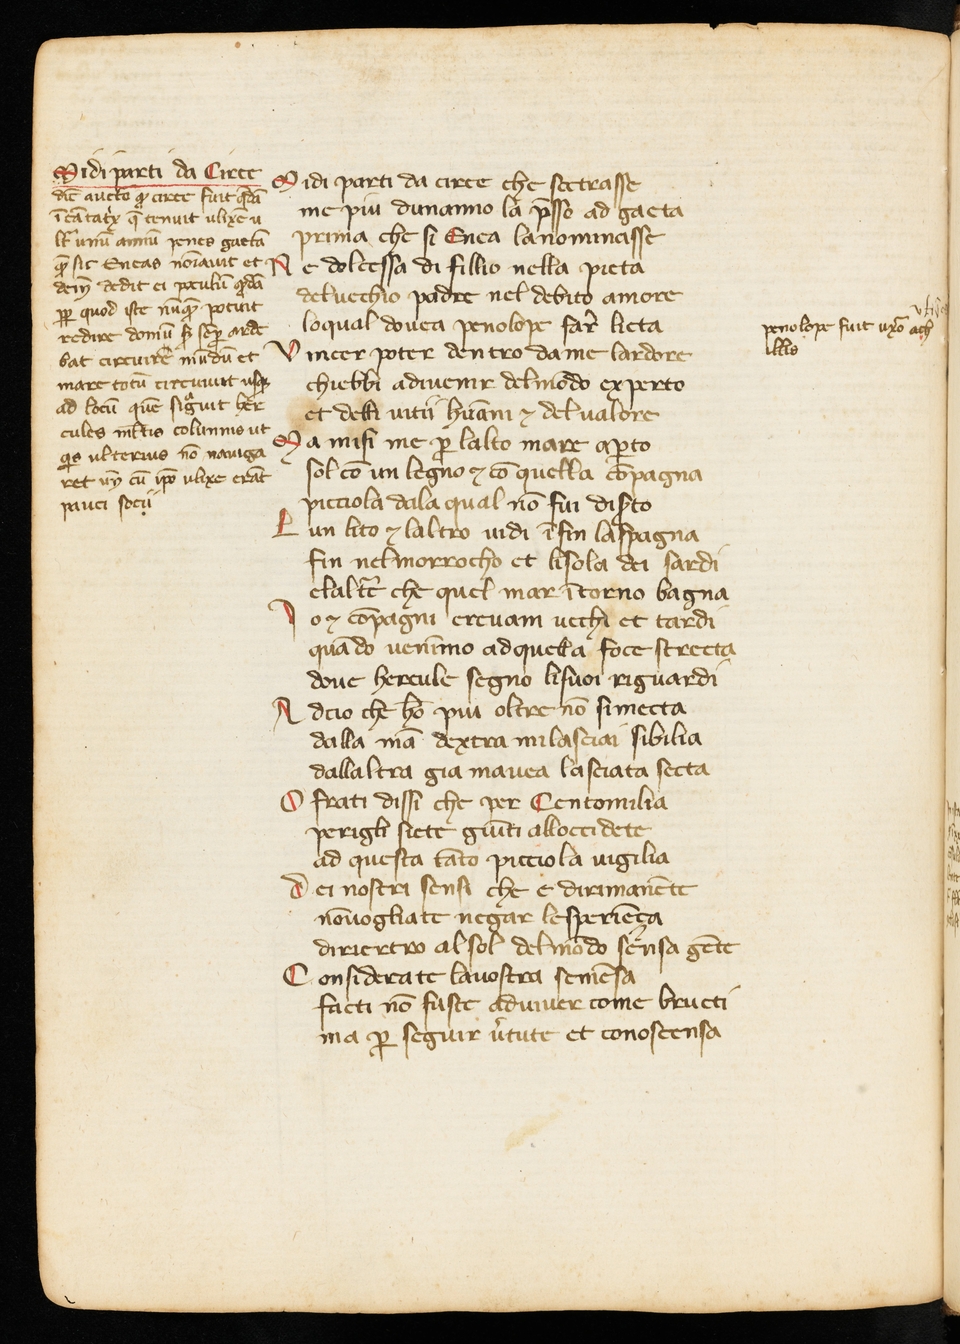 Midi parti da Circe
dic̄ auctō qͥ circe fuit qͥdā
īcātatͥx q̄ tenuit ulixē u
lt̄ unū annū penes gaetā
qͣ̄ sic Eneas noīauit et
dein̄ dedit ei poculū qͦdā
ꝓꝑ quod iste nūqͣ̄ potuit
redire domū sꝫ seꝑ arde
bat circuire mūdū et
mare totū circuiuit usqꝫ
ad locū quē sigͣuit her
cules mltis columnis ut
qͥs ulterius nō nauiga
ret un̄ cū ip̄o ulixe erāt
pauci socii
Midi parti da circe che soctrasse
me piu dunanno la p̄sso ad gaeta
prima che si Enea lanominasse
Ne dolcessa di fillio nella pieta
deluechio padre nel debito amore
loqual douea penolope far̄ lieta
Vincer poter dentro dame lardore
chiebbi adiuenir delmōdo experto
et delli uitii huāni ⁊ deluałore
Ma misi me ꝑ lalto mare aꝑto
sol cō un legno ⁊ cō quella cōpagna
picciola dala qual nō fui disͤrto
Lun lito ⁊ laltro uidi īfin laspagna
fin nelmorrocho et lisola dei sardi
elaltr̄e che quel mar ītorno bagna
Io ⁊ cōpagni erauam uechi et tardi
quādo uenīmo adquella foce strecta
doue hercule segno lisuoi riguardi
Adcio che hō piu oltre nō simecta
dalla mā dextra milasciai sibilia
dallaltra gia mauea lasciata secta
O frati dissi che per Centomilia
perigli siete giūti alloccidete
ad questa tāto picciola uigilia
Dei nostri sensi che e dirimanēte
nōuogliate negar lesperiēça
diriertro al sol delmōdo sēnsa gēte
Considerate lauostra semēsa
facti nō fuste aduiuer come bructi
ma ꝑ seguir ūtute et conoscensa
penolope fuit uxo᷑ ach
illis